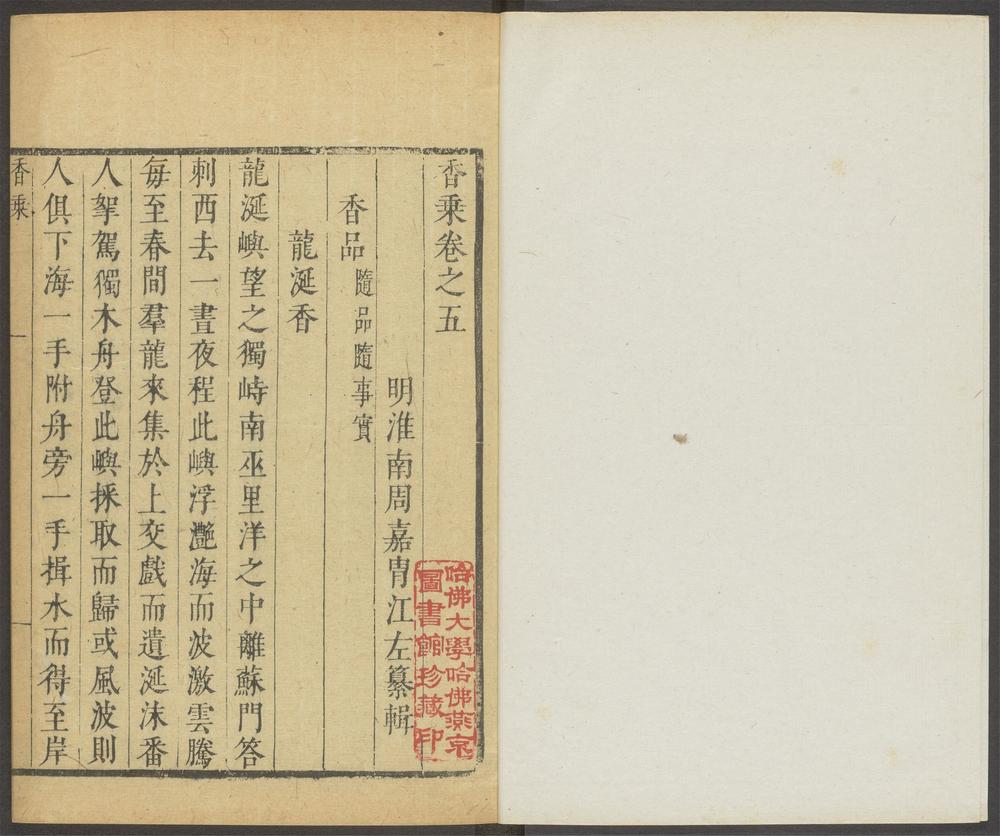 香乘卷之五
明淮南周嘉胄江左纂輯
香品隨品隨事實
龍涎香
龍涎嶼望之獨峙南巫里洋之中離蘇門答
剌西去一晝夜程此嶼浮灩海而波激雲騰
每至春間羣龍來集於上交戲而遺涎沫番
人挐駕獨木舟登此嶼採取而歸或風波則
人俱下海一手附舟旁一手揖水而得至岸
香乘
哈佛大學哈佛燕京
圖書館珍藏印